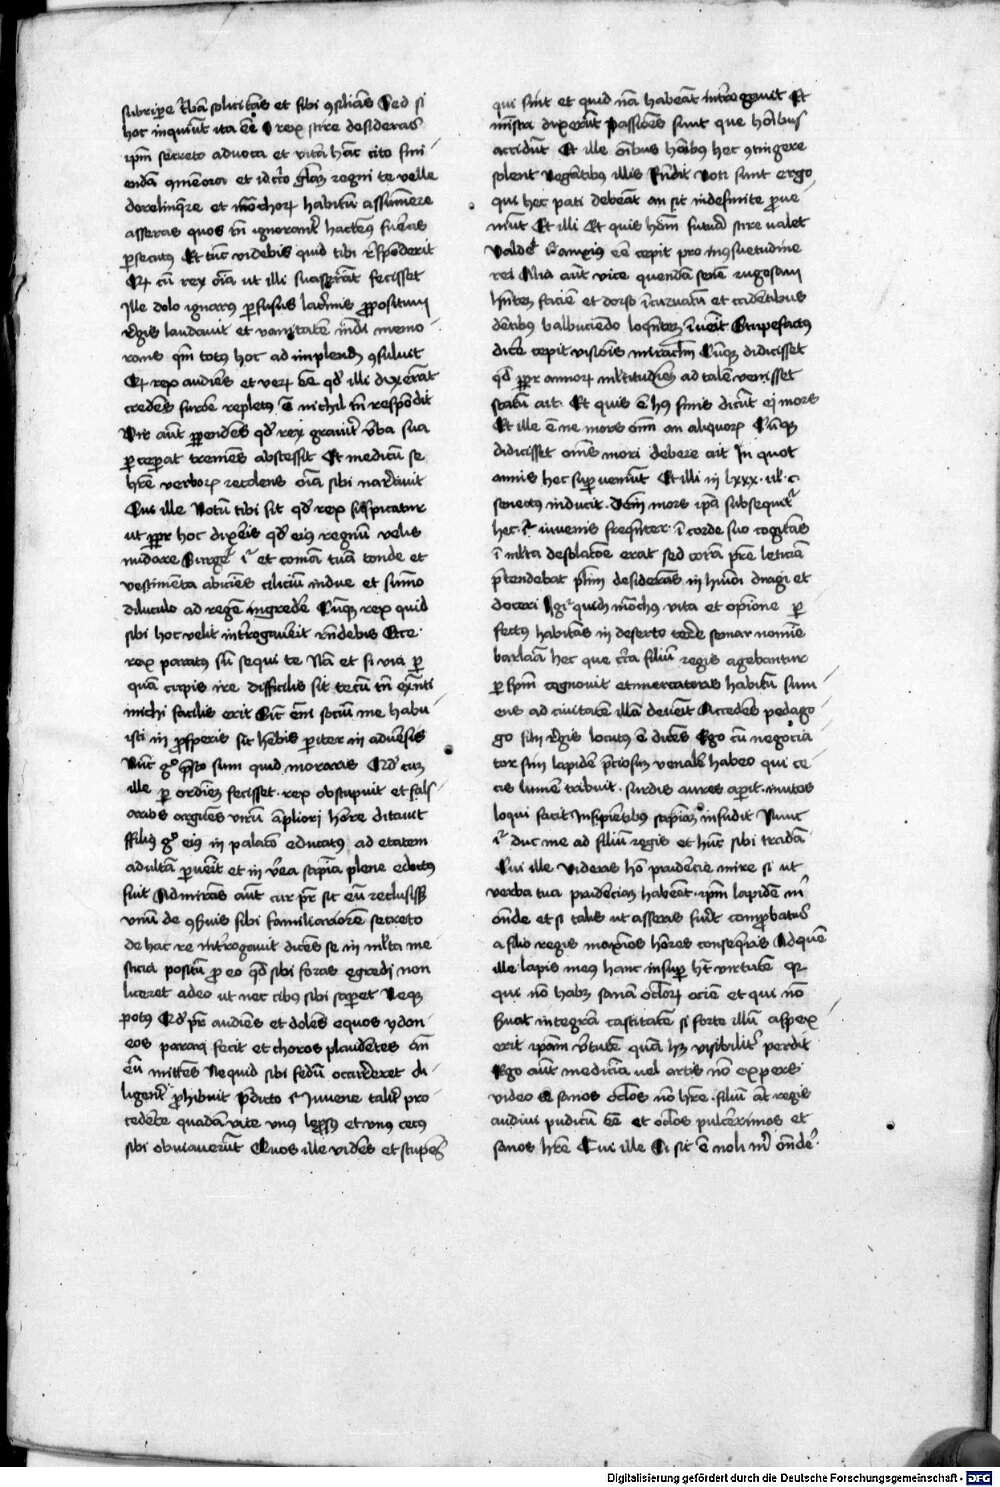 subripe turbā solicitās et sibi ↄsiliās Sed si
hoc inquiūt ita eē O rex scire desideras
ipm̄ secreto advoca et vitā hāc cito fini
endā ↄmemora et idcīro glīam regni te velle
derelinq̄re et mōchoꝝ habitū assumere
asseras quos tn̄ ignorant̓ hacteꝰ fueras
ꝑsecutꝰ Et tūc videbis quid tibi respōderit
Qꝫ cū rex oīa ut illi suaserāt fecisset
Ille dolo ignarꝰ ꝑfusus lacrimis ꝓpositum
regis laudavit et vanitatē mūdi memo
rans qm̄ totꝰ hoc ad implendū ↄsuluit
Qꝫ rex audiēs et veꝝ eē qd̓ illi dixerāt
credēs furore repletꝰ ē nichil tn̄ respōdit
Vir aūt ꝑpendēs qd̓ rex gravit̓ v̓ba sua
ꝑceperat tremēs abscessit Et medicū se
hr̄e verboꝝ recolens oīa sibi narravit
Cui ille Notū tibi sit qd̓ rex suspicatur
ut ꝓpr̄ hoc dixeris qd̓ eiꝰ regnū velis
invadare Surge gͥ et comā tuā tonde et
vestimēta abiciēs ciliciū indue et sūmo
diluculo ad regē ingredere Cūqꝫ rex quid
sibi hoc velit interrogaverit rn̄debis Ecce
rex paratꝰ sū sequi te Nā et si via ꝑ
quā cupis ire difficilis sit tecū tn̄ exn̄ti
michi facilis erit Sic̄ em̄ sociū me habu
isti in ꝓsperis sic hēbis ꝑiter in adv̓sis
Nūc gͦ p̄sto sum quid moraris Qd̓ cum
ille ꝑ ordinē fecisset rex obstupuit et fals
arios arguēs virū ampliori honore ditavit
ffiliꝰ gͦ eiꝰ in palatio educatꝰ ad etatem
adultā ꝑvenit et in om̄ea sapiā plene edoctꝰ
fuit Admirās aūt cur pr̄ sic eū reclusisset
vnū de s̓vis sibi familiariorē secreto
de hac re interrogavit dicēs se in mlta me
sticia positū ꝓ eo qd̓ sibi foras egredi non
liceret adeo ut nec cibꝰ sibi saperet Neqꝫ
potꝰ Qd̓ pr̄ audiēs et dolēs equos ydon
eos parari fecit et choros plaudētes an̄
eū mittēs Ne quid sibi fedū occurreret di
ligent̓ ꝓhibuit Predicto gͥ Iuvene talit̓ pro
cedēte quadā vice vnus leprosꝰ et vnꝰ cecꝰ
sibi obviaverūt Quos ille vidēs et stupēs
qui sint et quid nā habeāt interrogavit Et
ministri dixerūt Passiōes sunt que hoībus
accidūt Et ille Oībus hoībus hec ↄtingere
solent Negātibꝰ illis Rn̄dit Noti sunt ergo
qui hec pati debeāt an sic indefinite ꝓve
niūt Et illi Et quis hoīm futura scire valet
Valde gͥ anxius eē cepit pro inↄsuetudine
rei Alia aūt vice quendā senē rugosam
hn̄tem faciē et dorsū īcurvatū et cadētibus
dētibꝰ balbuciēdo loqn̄tem īvenit Stupefactꝰ
dicere cepit visionis miraclm̄ Cūqꝫ didicisset
qd̓ ꝓpr̄ annoꝝ mltitudinē ad talē venisset
statū ait Et quis ē hꝰ finis dicūt ei mors
Et ille ē ne mors oīm an aliquoꝝ Cūqꝫ
didicisset om̄s mori debere ait In quot
annis hec suꝑveniūt Et illi in lxxx vl c
senectus inducit Deīn mors ip̄a subsequit̓
hec gͥ iuvenis freqn̄ter ī corde suo cogitās
ī mlta desolatōe erat sed corā pr̄e leticiā
p̄tendebat plm̄ desiderās in hmōi dirigi et
doceri Igi quidā mōchꝰ vita et opinione ꝑ
fectus habitās in deserto terre senaar nomīe
barlaā hec que circa filiū regis agebantur
ꝑ spm̄ cognovit et mercatoris habitū sum
ens ad civitatē illā devenit Accedēs pedago
go filii regis locutꝰ ē dicēs Ego cū negocia
tor sim lapidē p̄ciosum venalē habeo qui ce
cis lumē tribuit surdis aures aperit mutos
loqui facit Insipiētibꝰ sapīam infudit Nunc
gͥ duc me ad filiū regis et hūc sibi tradā
Cui ille Videris hō prudēcie mire sꝫ ut
verba tua prudēciam habeāt ipm̄ lapidē m̄
ōnde et si talis ut asseras fuerit comprobatus
a filio regis maxios honores consequeris Adquē
ille lapis meꝰ hanc insuꝑ hꝫ virtutē qꝫ
qui nō habꝫ sanā ocloꝝ aciē et qui nō
s̓vat integrā castitatē si forte illū aspex
erit ipam v̓tutē quā hꝫ visibilit̓ perdit
Ego aūt medicīa vel artis nō expers
video te sanos oclos nō hr̄e filiū aūt regis
audivi pudicū eē et oclos pulcerrimos et
sanos hr̄e Cui ille Si sic ē noli m̓ ōnde
Digitalisierung gefördert durch die Deutsche Forschungsgemeinschaft - DFG